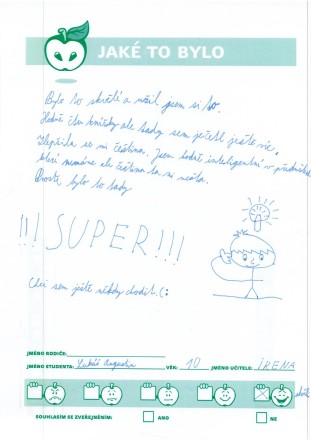 JAKÉ TO BYLO
Bylo to skvělé a užil jsem si to.
Hodně čtu knížky ale tady sem ječetl ještě víc.
Zlepšila se mi čeština. Jsem hodně inteligentní v předmětech
které nemáme ale čeština ta mi nešla.
Prostě, bylo to tady
!!! SUPER!!!
Chci sem ještě někdy chodit.(:
JMÉNO RODIČE:
JMÉNO STUDENTA: Lukáš VĚK: 10 JMÉNO UČITELE: IRENA
SOUHLASÍM SE ZVEŘEJNĚNÍM: ANO NE